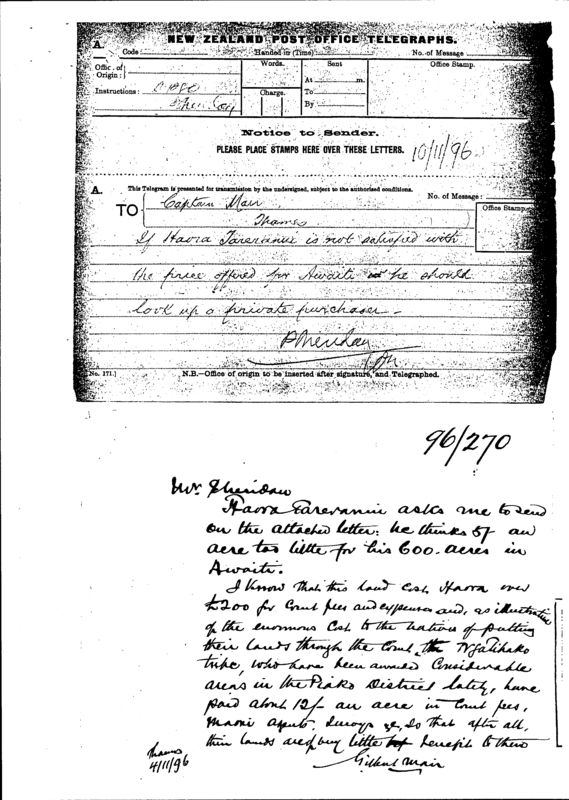 NEW ZEALAND POST OFFICE TELEGRAPHS.
A.
Code Handed in (Time) No. of Message
Offic. of Origin : Words. Sent Office Stamp.
At m.
Instructions : To
Charge. By
Notice to Sender.
PLEASE PLACE STAMPS HERE OVER THESE LETTERS. 10/11/96
A. This Telegram is presented for transmission by the undersigned, subject to the authorised conditions.
No. of Message :
TO Captain Mair Office Stamp.
Thames
If Haora Tareranui is not satisfied with
the price offered for Awaiti he should
look up a private purchaser.
P Sheridan
No. 171.] N.B.—Office of origin to be inserted after signature, and Telegraphed.
96/270
Mr. Sheridan
Haora Tareranui asks me to send
on the attached letter: he thinks 5/ an
acre too little for his 600. acres in
Awaiti.
I know that this land cost Haora over
£200 for Court fees and expenses and, as illustrative
of the enormous cost to the natives of putting
their lands through the Court, the
tribe, who have been awarded considerable
areas in the Piako District lately, have
paid about 12/- an acre in Court fees,
Maori Agents, Surveys &c, so that after all,
their lands are of very little benefit to them
Gilbert Mair
Thames
4/11/96